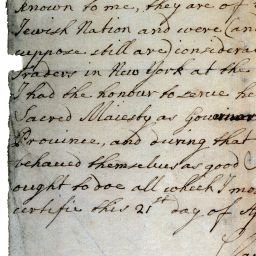 known to me, they are of
Jewish Nation and were (and
suppose still are) considera
Traders in New York at the
I had the honour to serve he
Sacred Maiesty as Governor
Province, and during that
behaued themselves as good
ought to doe all which I mo
certifie this 21st day of